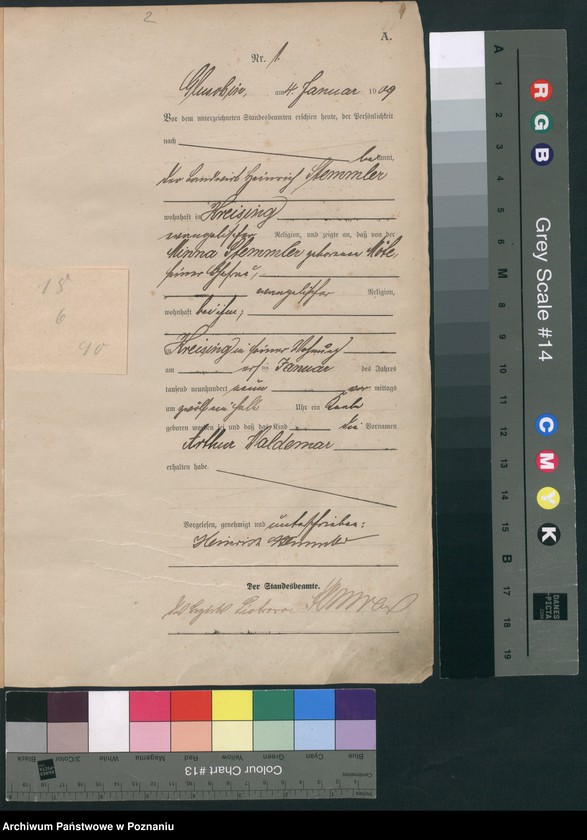 2
A.
Nr. 1.
am 4. Januar 1909
Vor dem unterzeichneten Standesbeamten erschien heute, der Persönlichkeit
nach
bekannt,
der Landwirt Heinrich Stemmler
wohnhaft in Kreising
evangelischer Religion, und zeigte an, daß von der
Minna Stemmler geborenen
seiner Ehefrau,
evangelischer Religion,
wohnhaft bei ihm,
zu Kreising in seiner Wohnung
am ersten Januar des Jahres
tausend neunhundert neun vor mittags
um zwölf ein halb Uhr ein Knabe
geboren worden sei und daß das Kind die Vornamen
Arthur Waldemar
erhalten habe.
Vorgelesen, genehmigt und unterschrieben:
Heinrich Stemmler
Der Standesbeamte.
6
90
A 1 2 3 4 5 6 M 8 9 10 11 12 13 14 15 B 17 18 19
R
G
B
Grey Scale #14
C
M
Y
K
DANES
PICTA
.COM
Black 3/Color White Magenta Red Yellow Green Cyan Blue
Colour Chart #13
Centimetres
Archiwum Państwowe w Poznaniu